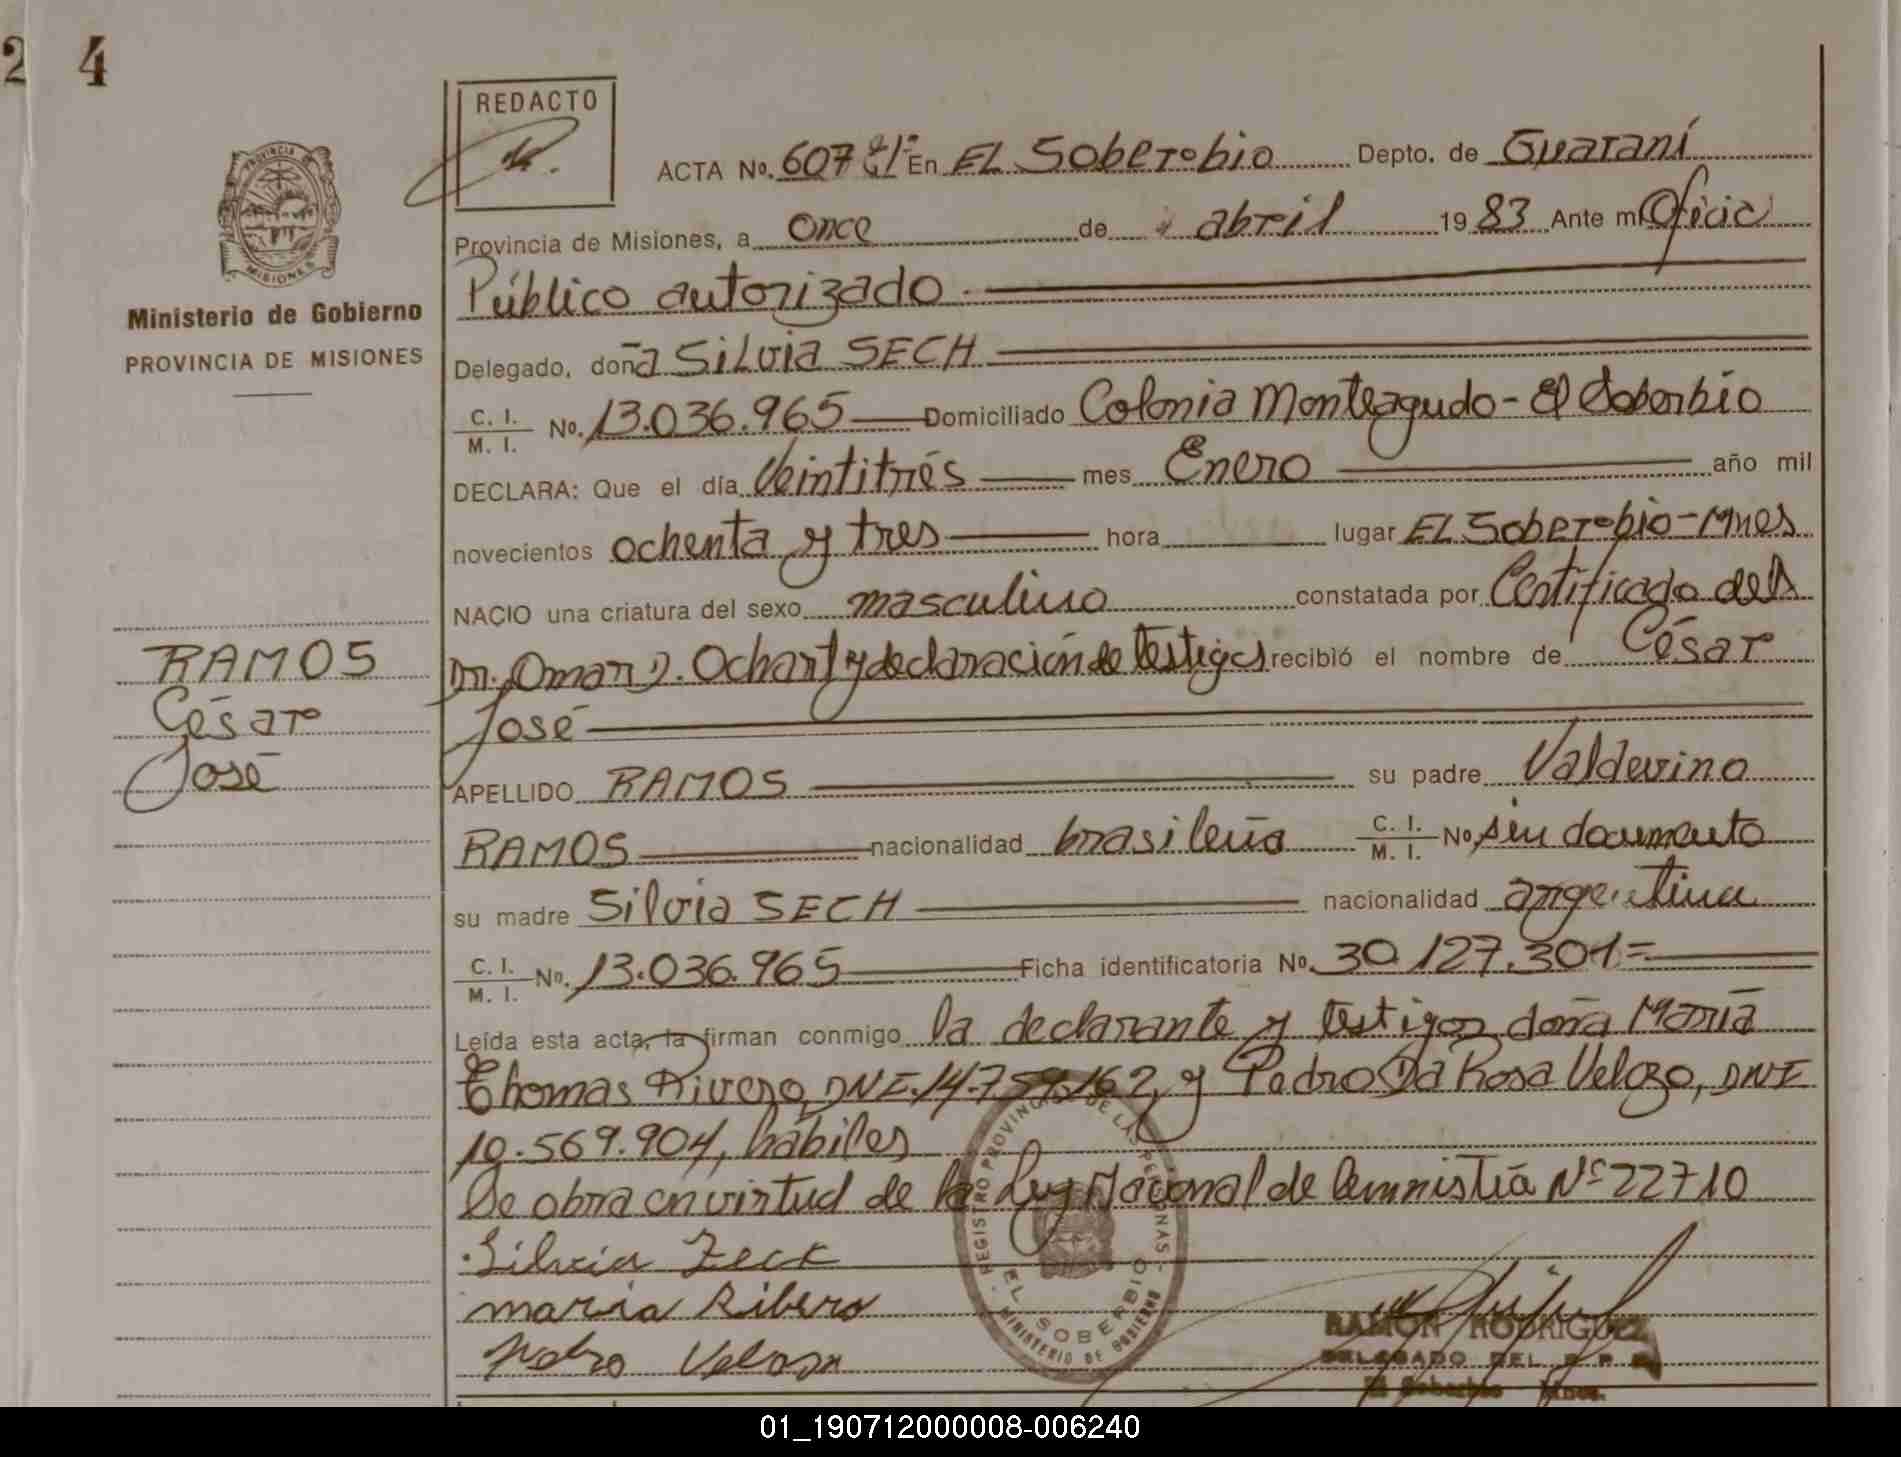 2 4
REDACTO
ACTA No. 607 En EL Soberbio Depto. de Guaraní
Provincia de Misiones, a once de abril 1983 Ante mi Oficial
Público autorizado
Ministerio de Gobierno
PROVINCIA DE MISIONES
PROVINCIA DE
MISIONES
Delegado, doña Silvia SECH
C. I. M. I. No. 13.036.965 Domiciliado Colonia Monteagudo - El Soberbio
DECLARA: Que el día Veintitrés mes Enero año mil
novecientos ochenta y tres hora lugar EL Soberbio-Mnes
NACIO una criatura del sexo masculino constatada por Certificado del
RAMOS
César
José
Dr. Omar D. Ochart y declaración de testigos recibió el nombre de César
José
APELLIDO RAMOS su padre Valdevino
RAMOS nacionalidad brasileña C. I. M. I. No. sin documento
su madre Silvia SECH nacionalidad argentina
C. I. M. I. No. 13.036.965 Ficha identificatoria No. 30.127.301=
Leída esta acta, la firman conmigo la declarante y testigos doña María
Thomas Rivero, DNI.14.759.162, y Pedro Da Rosa Velozo, DNI
10.569.904, hábiles
Se obra en virtud de la Ley Nacional de Amnistía Nº 22710
Silvia Zeck
maria Ribero
Pedro Velozo
REGISTRO PROVINCIAL DE LAS PERSONAS - MINISTERIO DE GOBIERNO
EL SOBERBIO
RAMON RODRIGUEZ
DELEGADO DEL R P P
El Soberbio Mnes.
01_190712000008-006240